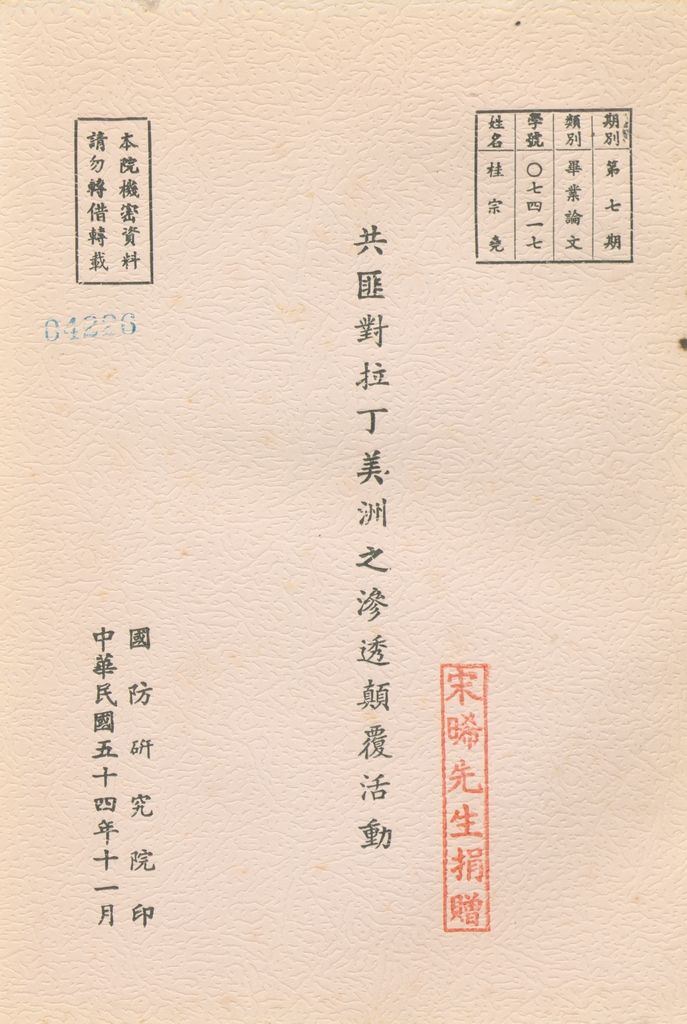 期別 第七期
類別 畢業論文
學號 〇七四一七
姓名 桂宗堯
共匪對拉丁美洲之滲透顛覆活動
宋晞先生捐贈
本院機密資料
請勿轉借轉載
04226
國防研究院印
中華民國五十四年十一月